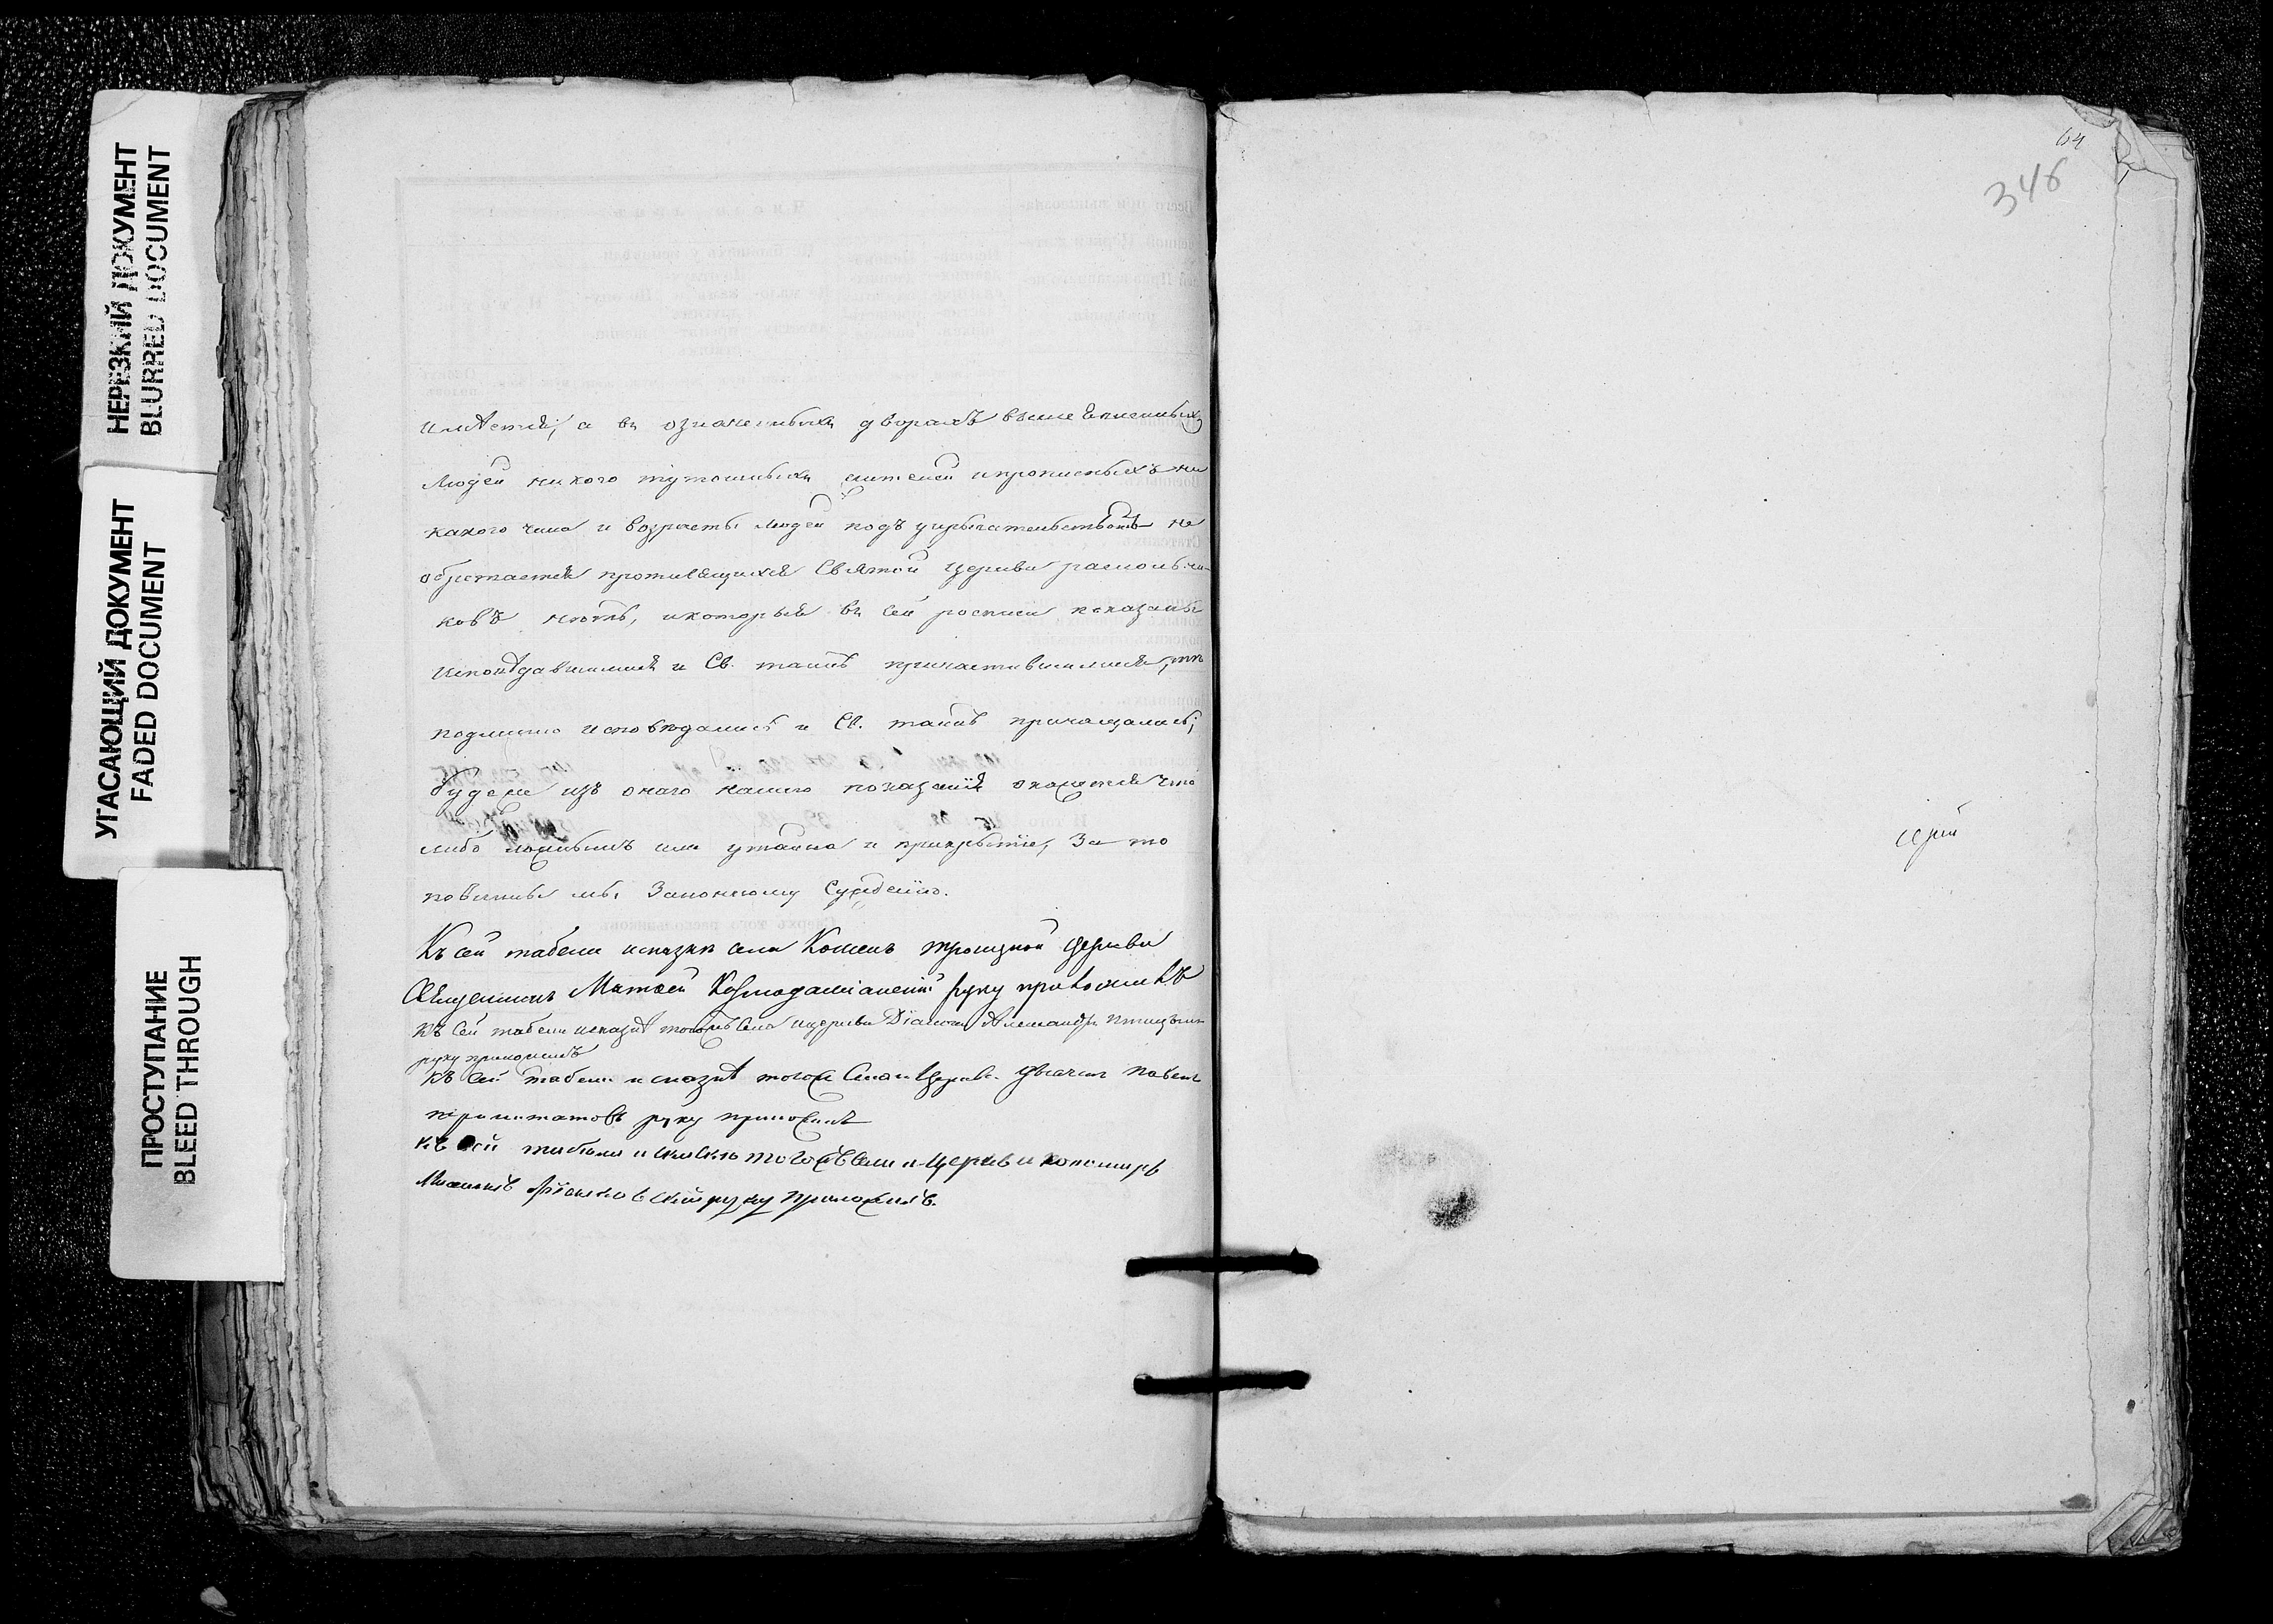 НЕРЕЗКИЙ ДОКУМЕНТ
BLURRED DOCUMENT
УГАСАЮЩИЙ ДОКУМЕНТ
FADED DOCUMENT
ПРОСТУПАНИЕ
BLEED THROUGH
имѣется, а въ означенныхъ дворахъ выше описанныхъ
людей никого тутошныхъ жителей и прописныхъ ни
какого чина и возраста людей подъ укрывательствомъ не
обретается противящихся Святой церкви раскольни-
ковъ нѣтъ, и которые въ сей росписи показаны
исповѣдавшимися и Св. таинъ причастившимися, тѣ
подлинно исповѣдались и Св. таинъ причащались;
будеже изъ онаго нашего показанія окажется что
либо ложнымъ или утайка и прикрытіе, За то
повинны мы Законному Сужденію.
Къ сей табели и сказкѣ села троицкой церкви
Священникъ Матвей Козмодаміанскій руку приложилъ
Къ сей табели и сказкѣ тогожъ села и церкви Діаконъ Александръ
руку приложилъ
Къ сей табели и сказкѣ тогоже села и церкви дьячекъ Павелъ
руку приложилъ
Къ сей табели и сказкѣ тогожъ села и церкви пономарь
руку приложилъ.
64
346